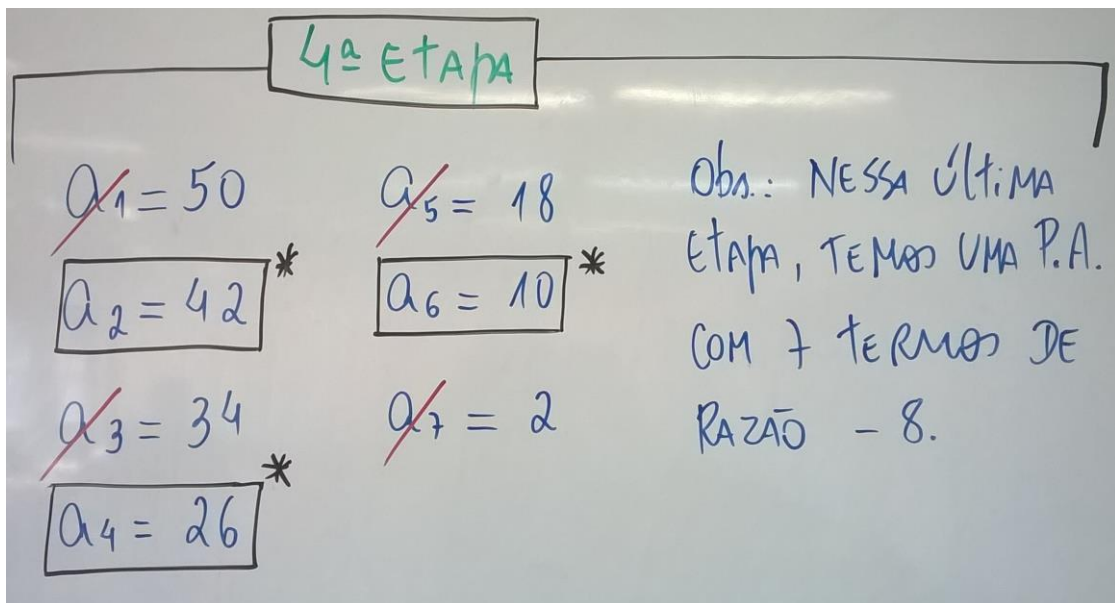 4ª ETAPA
a1 = 50
a2 = 42 *
a3 = 34
a4 = 26 *
a5 = 18
a6 = 10 *
a7 = 2
Obs.: NESSA ÚLTIMA
ETAPA, TEMOS UMA P.A.
COM 7 TERMOS DE
RAZÃO - 8.